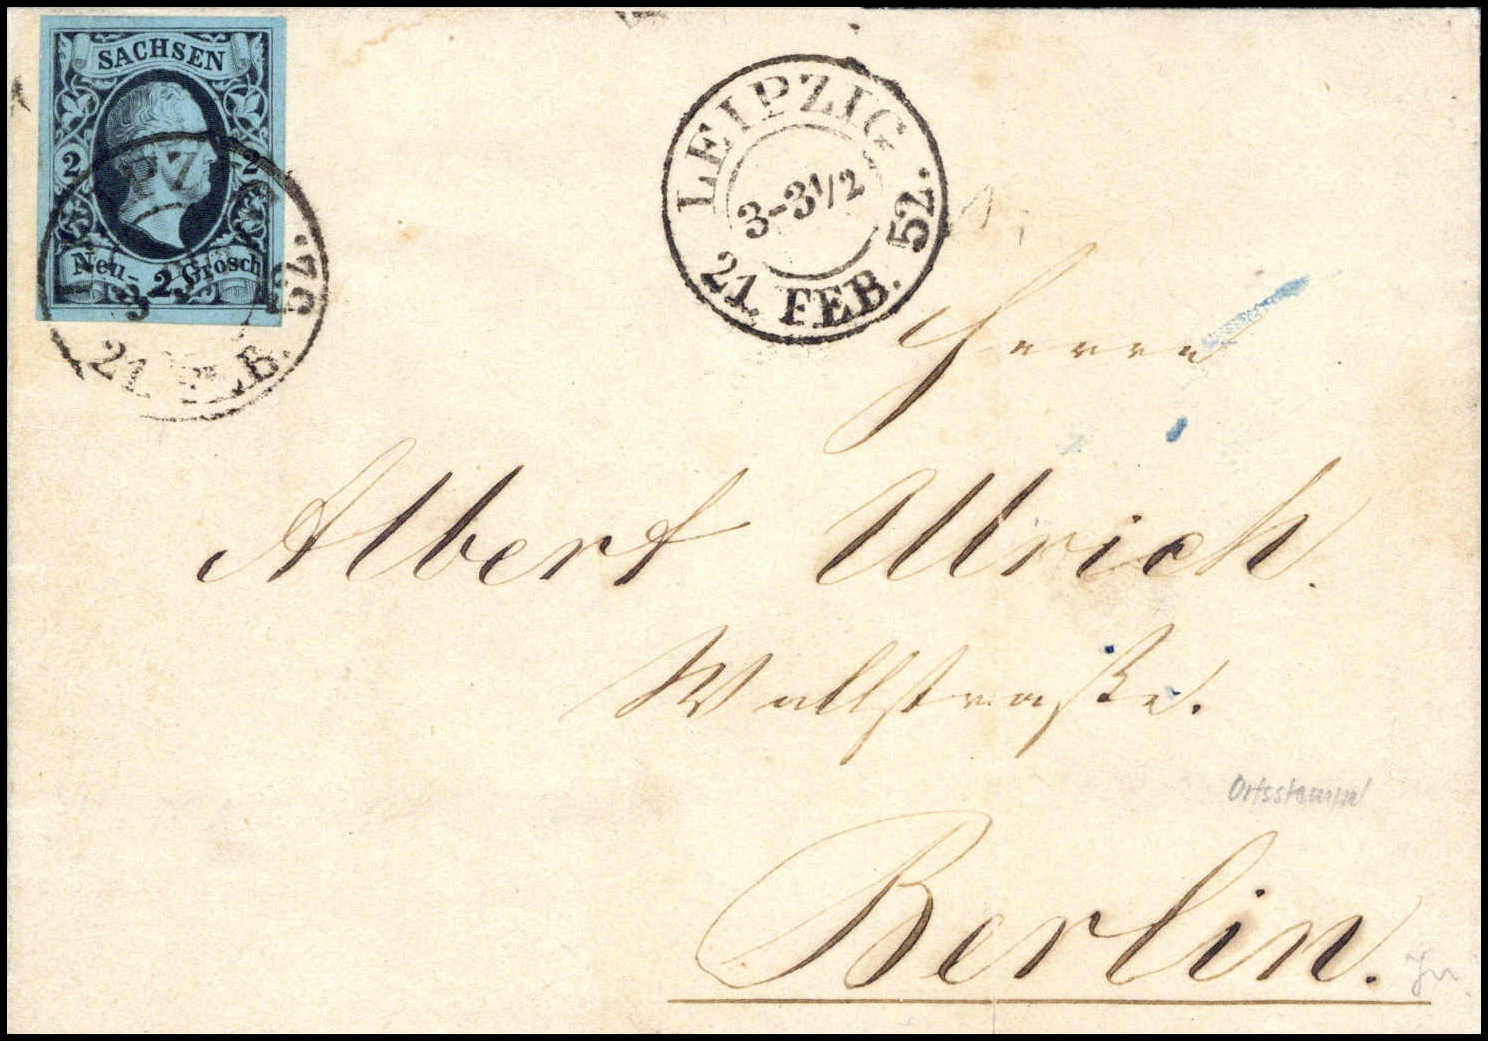 SACHSEN
2 2
Neu- 2 Grosch
PZ
3
21. FEB. 52.
LEIPZIG
3-3½
21. FEB. 52.
Herrn
Albert Ullrich.
Wallstraße.
Ortsstempel
Berlin.